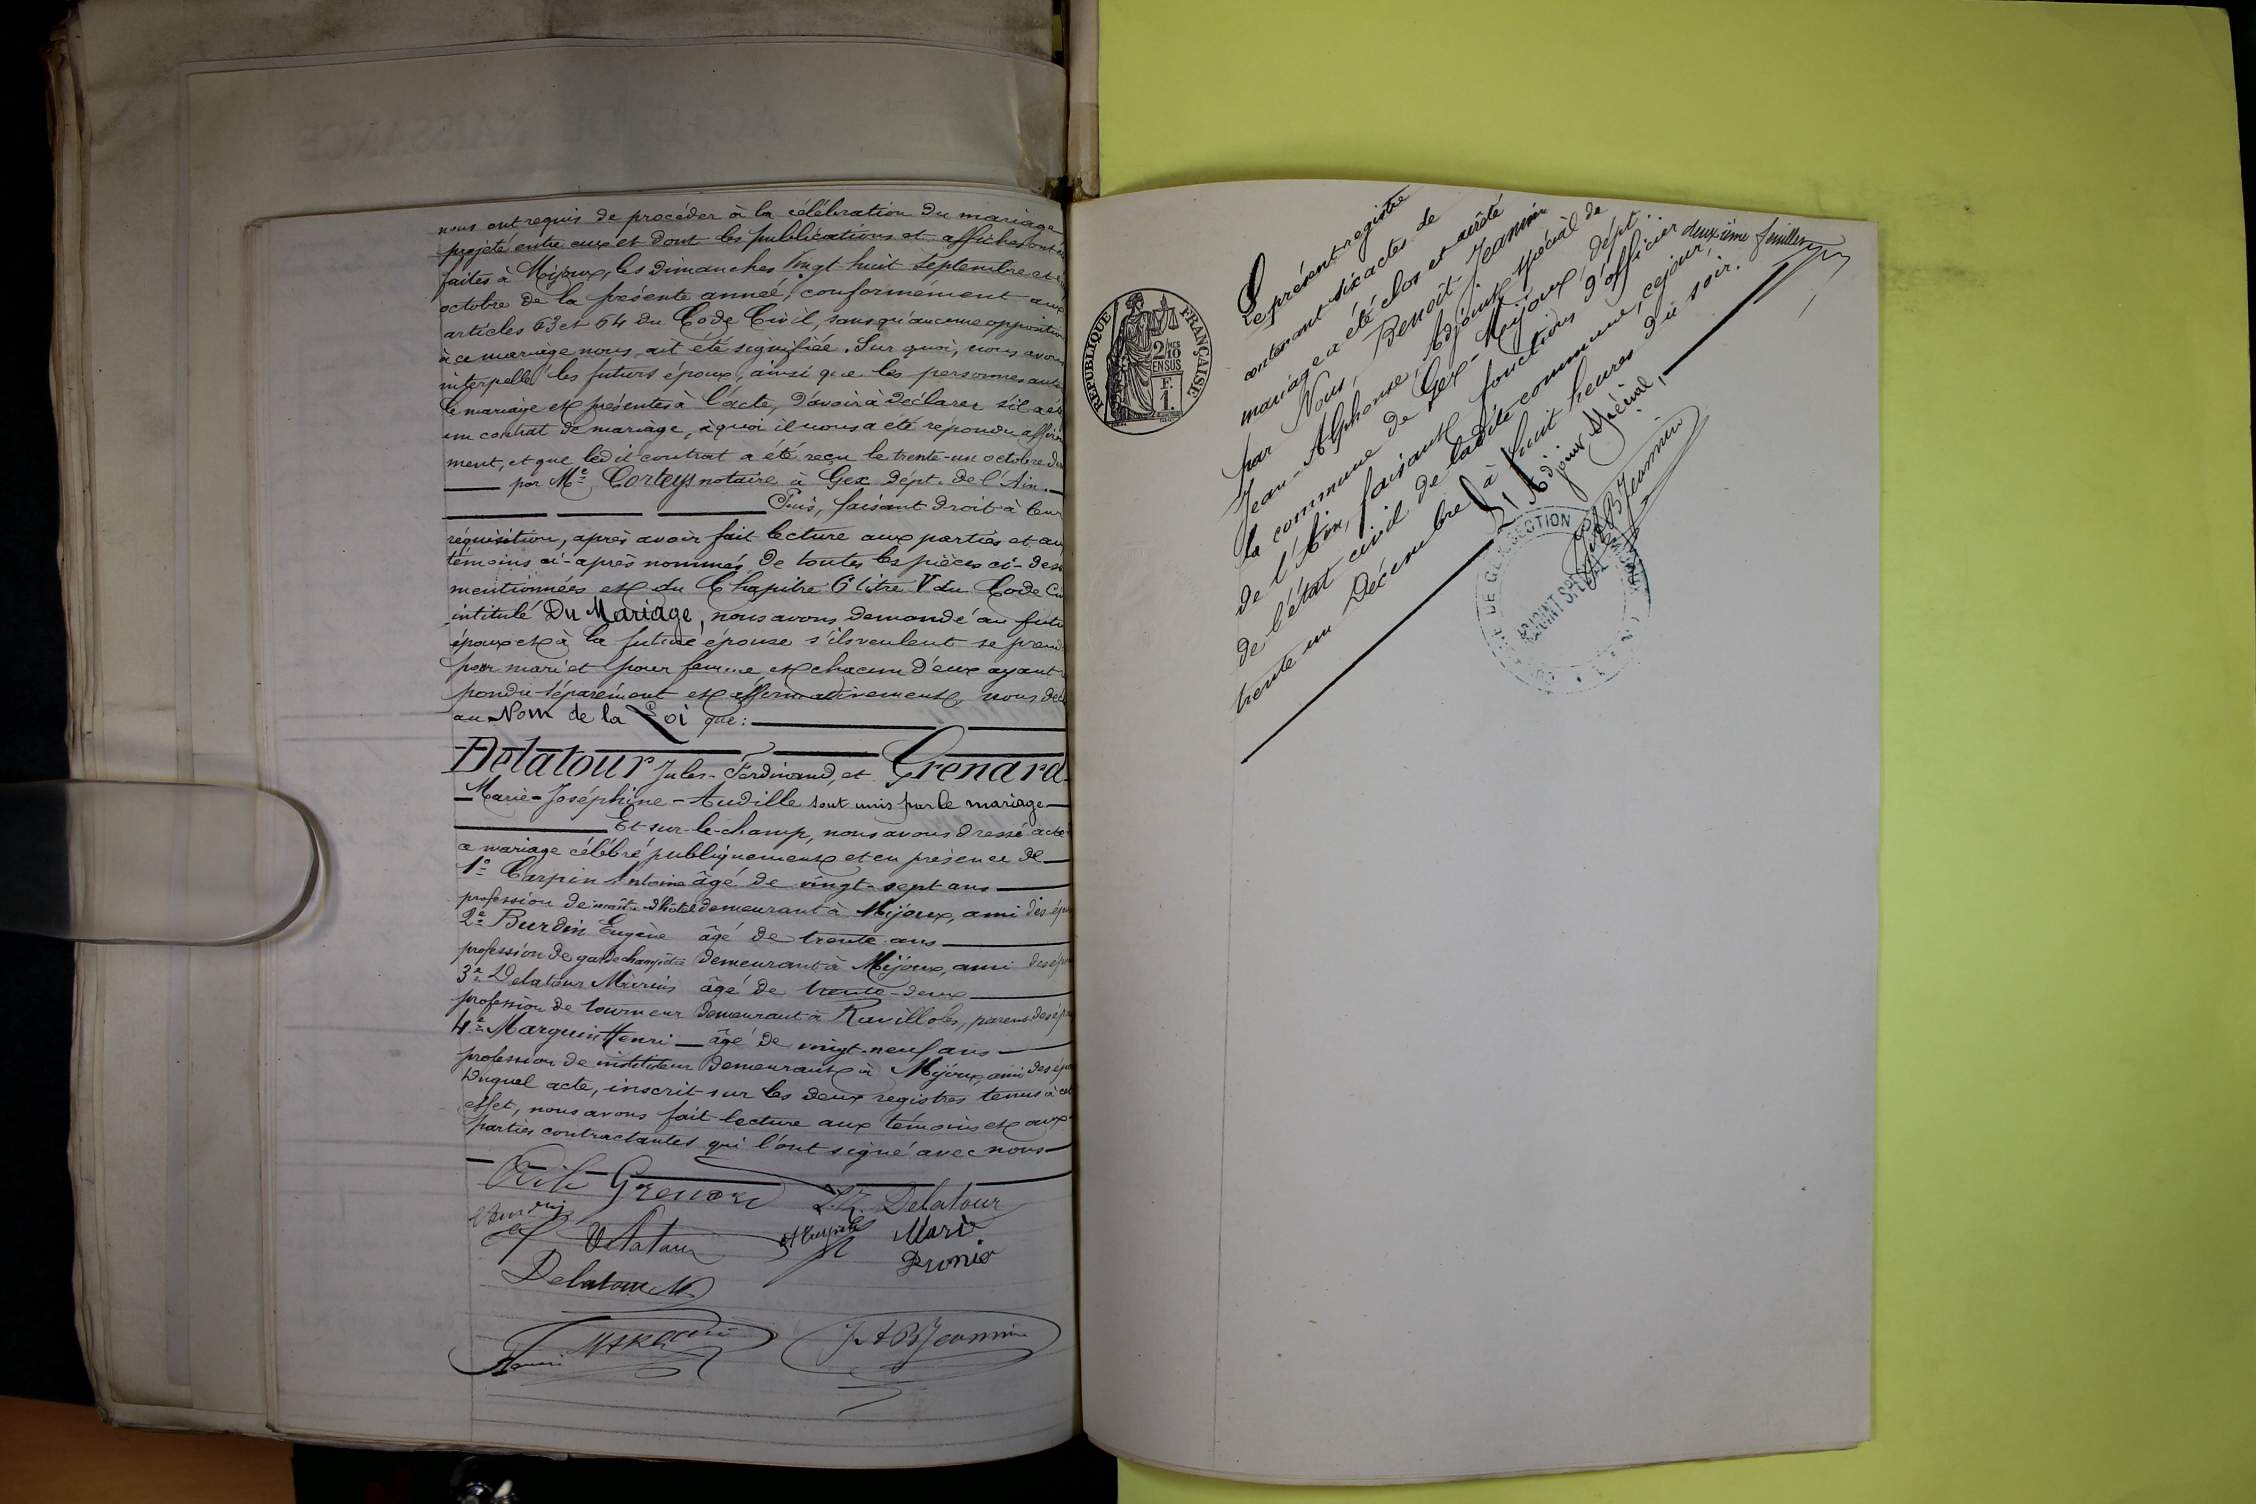 nous ont requis de procéder à la célébration du mariage
projeté entre eux et dont les publications et affiches ont
faites à Mijoux, les dimanches vingt huit septembre et
octobre de la présente année, conformément aux
articles 63 et 64 du Code Civil, sans qu'aucune opposition
à ce mariage nous ait été signifiée. Sur quoi, nous avons
interpellé les futurs époux, ainsi que les personnes
le mariage et présentes à l'acte, d'avoir à déclarer s'il a
un contrat de mariage, à quoi il nous a été répondu
ment, et que ledit contrat a été reçu le trente-un octobre
par Me Corteys notaire à Gex dépt. de l'Ain.
Puis, faisant droit à leur
réquisition, après avoir fait lecture aux parties et au
témoins ci-après nommés de toutes les pièces ci-des
mentionnées et du Chapitre 6 titre V du Code
intitulé Du Mariage, nous avons demandé au
époux et à la future épouse s'ils veulent se
pour mari et pour femme et chacun d'eux ayant
pondu séparément et affirmativement, nous
au Nom de la Loi que:
Delatour Jules-Ferdinand, et Grenard
Marie-Joséphine-Audille sont unis par le mariage
Et sur-le-champ, nous avons dressé acte
ce mariage célébré publiquement et en présence de
1e Carpin Antoine âgé de vingt-sept ans
profession de maître d'hôtel demeurant à Mijoux, ami des
2e Burdin Eugène âgé de trente ans
profession de garde champêtre demeurant à Mijoux, ami des
3e Delatour Marius âgé de trente-deux
profession de tourneur demeurant à Ravilloles, parent des
4e Marquin Henri âgé de vingt-neuf ans
profession de instituteur demeurant à Mijoux, ami des
Duquel acte, inscrit sur les deux registres tenus à cet
effet, nous avons fait lecture aux témoins et aux
parties contractantes qui l'ont signé avec nous
Grenard J. F. Delatour
Burdin Delatour Marie
Delatour M
Henri JAB Jeannin
RÉPUBLIQUE FRANÇAISE
2/10 EN SUS
F. 1.
deuxième feuillet
Le présent registre
contenant six actes de
mariage a été clos et arrêté
par Nous, Benoît Jeannin
Jean-Alphonse, Adjoint spécial de
la commune de Gex-Mijoux, dépt
de l'Ain, faisant fonctions d'officier
de l'état civil de ladite commune, ce jour,
trente un Décembre à huit heures du soir.
L'Adjoint Spécial,
JAB Jeannin
DE GEX SECTION
ADJOINT SPÉCIAL